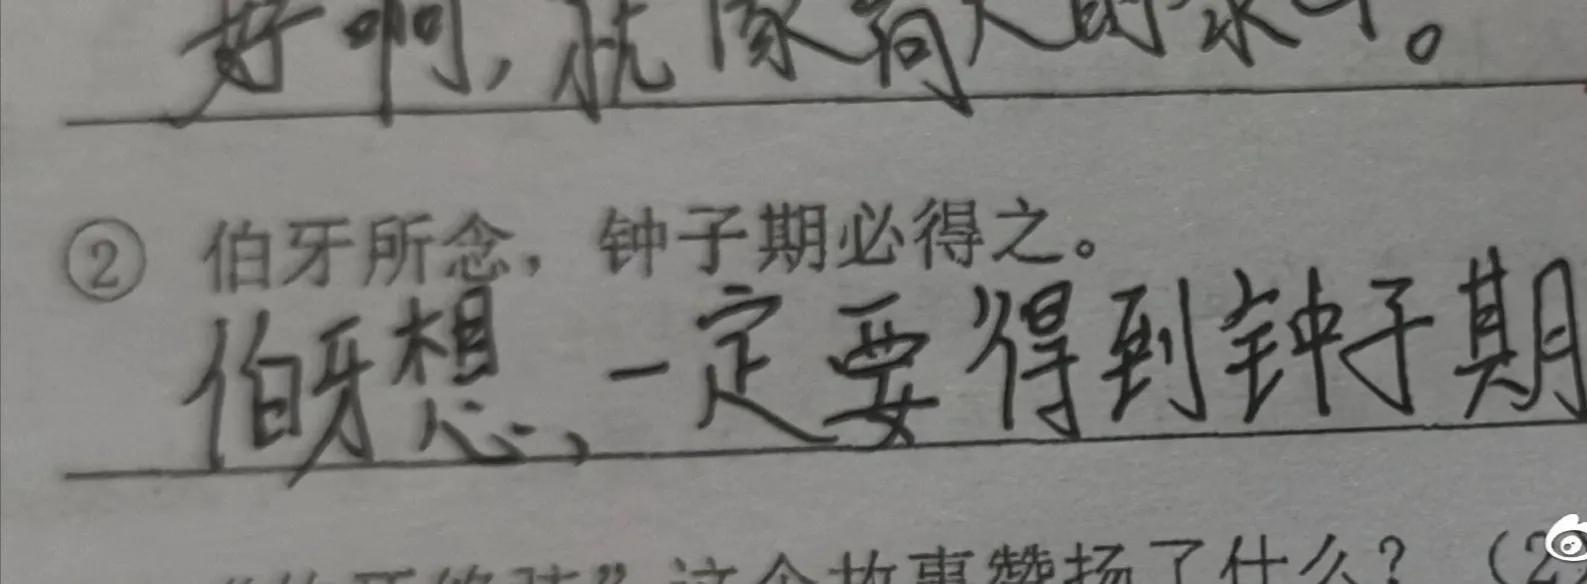 好啊，就像高大的泰山。
② 伯牙所念，钟子期必得之。
伯牙想，一定要得到钟子期
这个故事赞扬了什么？（2